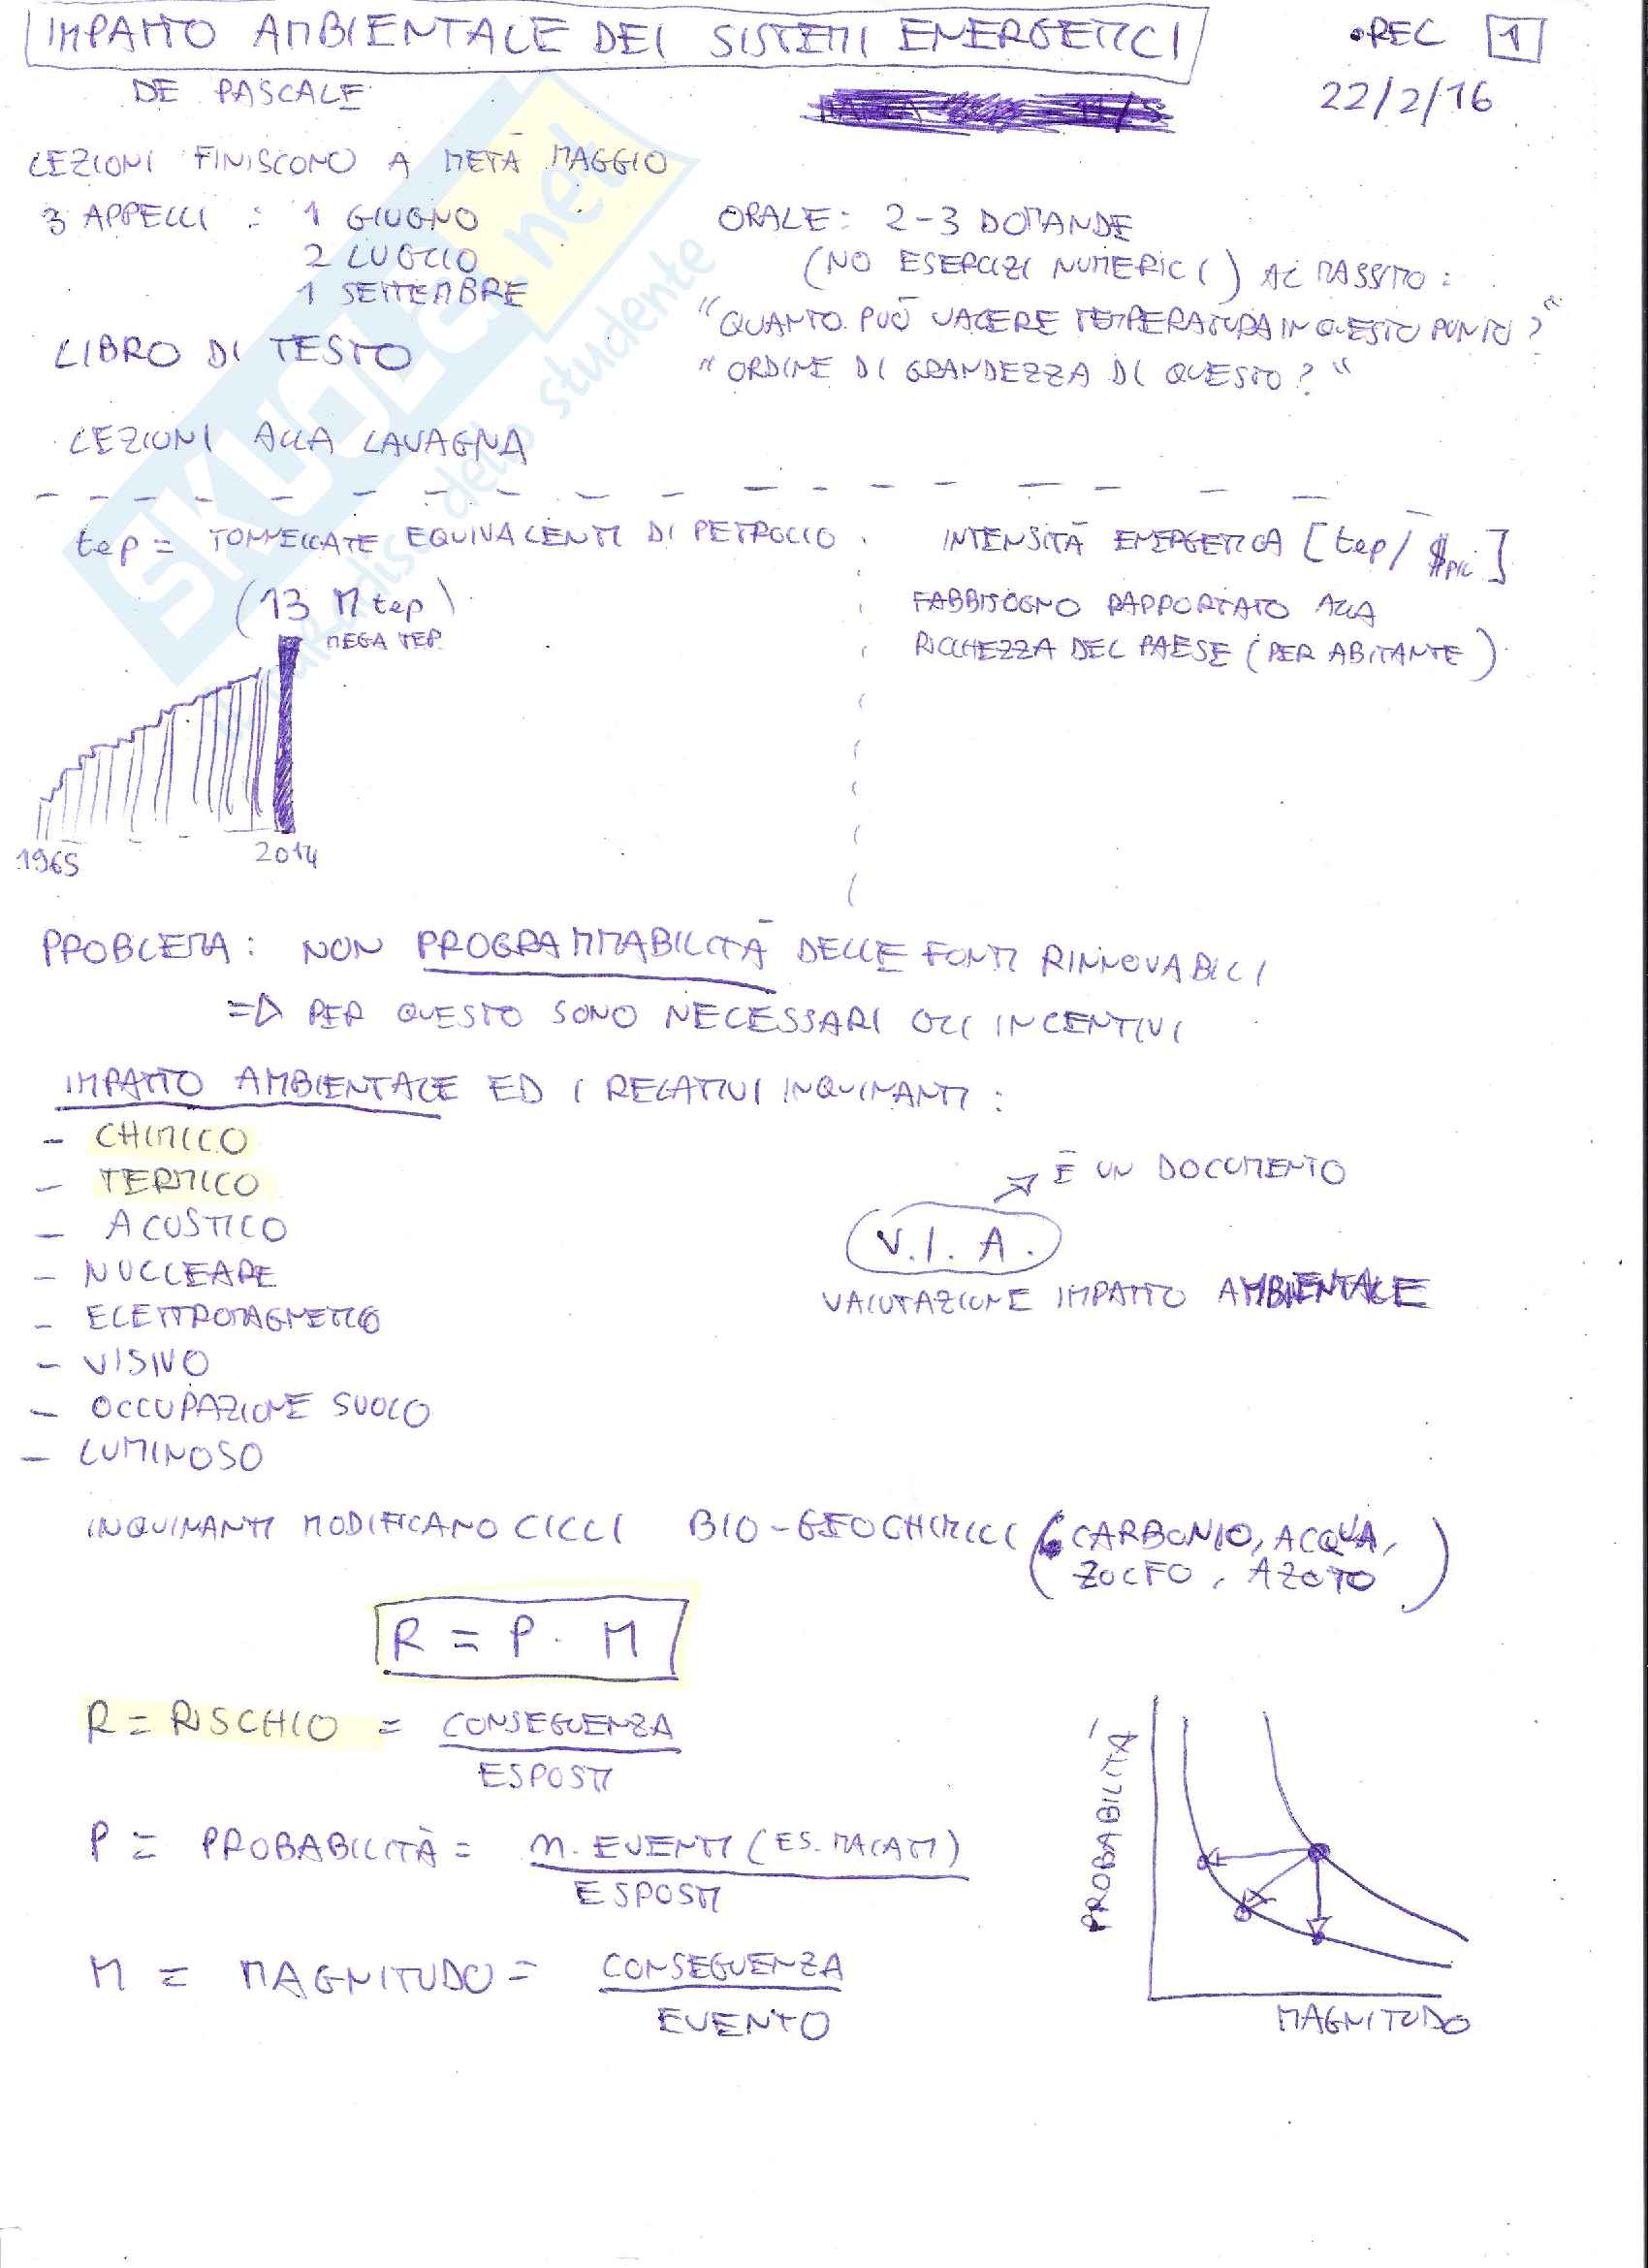 IMPATTO AMBIENTALE DEI SISTEMI ENERGETICI
•REC 1
DE PASCALE
22/2/16
LEZIONI FINISCONO A METÀ MAGGIO
3 APPELLI : 1 GIUGNO
2 LUGLIO
1 SETTEMBRE
ORALE: 2-3 DOMANDE
(NO ESERCIZI NUMERICI) AL MASSIMO:
"QUANTO PUÒ VALERE TEMPERATURA IN QUESTO PUNTO?"
"ORDINE DI GRANDEZZA DI QUESTO?"
LIBRO DI TESTO
LEZIONI ALLA LAVAGNA
SKUOLA.net
il paradiso dello studente
tep = TONNELLATE EQUIVALENTI DI PETROLIO
(13 M tep)
MEGA TEP
1965
2014
INTENSITÀ ENERGETICA [tep/$PIL]
FABBISOGNO RAPPORTATO ALLA
RICCHEZZA DEL PAESE (PER ABITANTE)
PROBLEMA: NON PROGRAMMABILITÀ DELLE FONTI RINNOVABILI
=> PER QUESTO SONO NECESSARI GLI INCENTIVI
IMPATTO AMBIENTALE ED I RELATIVI INQUINANTI:
- CHIMICO
- TERMICO
- ACUSTICO
- NUCLEARE
- ELETTROMAGNETICO
- VISIVO
- OCCUPAZIONE SUOLO
- LUMINOSO
È UN DOCUMENTO
V.I.A.
VALUTAZIONE IMPATTO AMBIENTALE
INQUINANTI MODIFICANO CICLI BIO-GEOCHIMICI (CARBONIO, ACQUA,
ZOLFO, AZOTO)
R = P · M
R = RISCHIO = CONSEGUENZA
ESPOSTI
P = PROBABILITÀ = n. EVENTI (ES. MALATI)
ESPOSTI
M = MAGNITUDO = CONSEGUENZA
EVENTO
PROBABILITÀ
MAGNITUDO